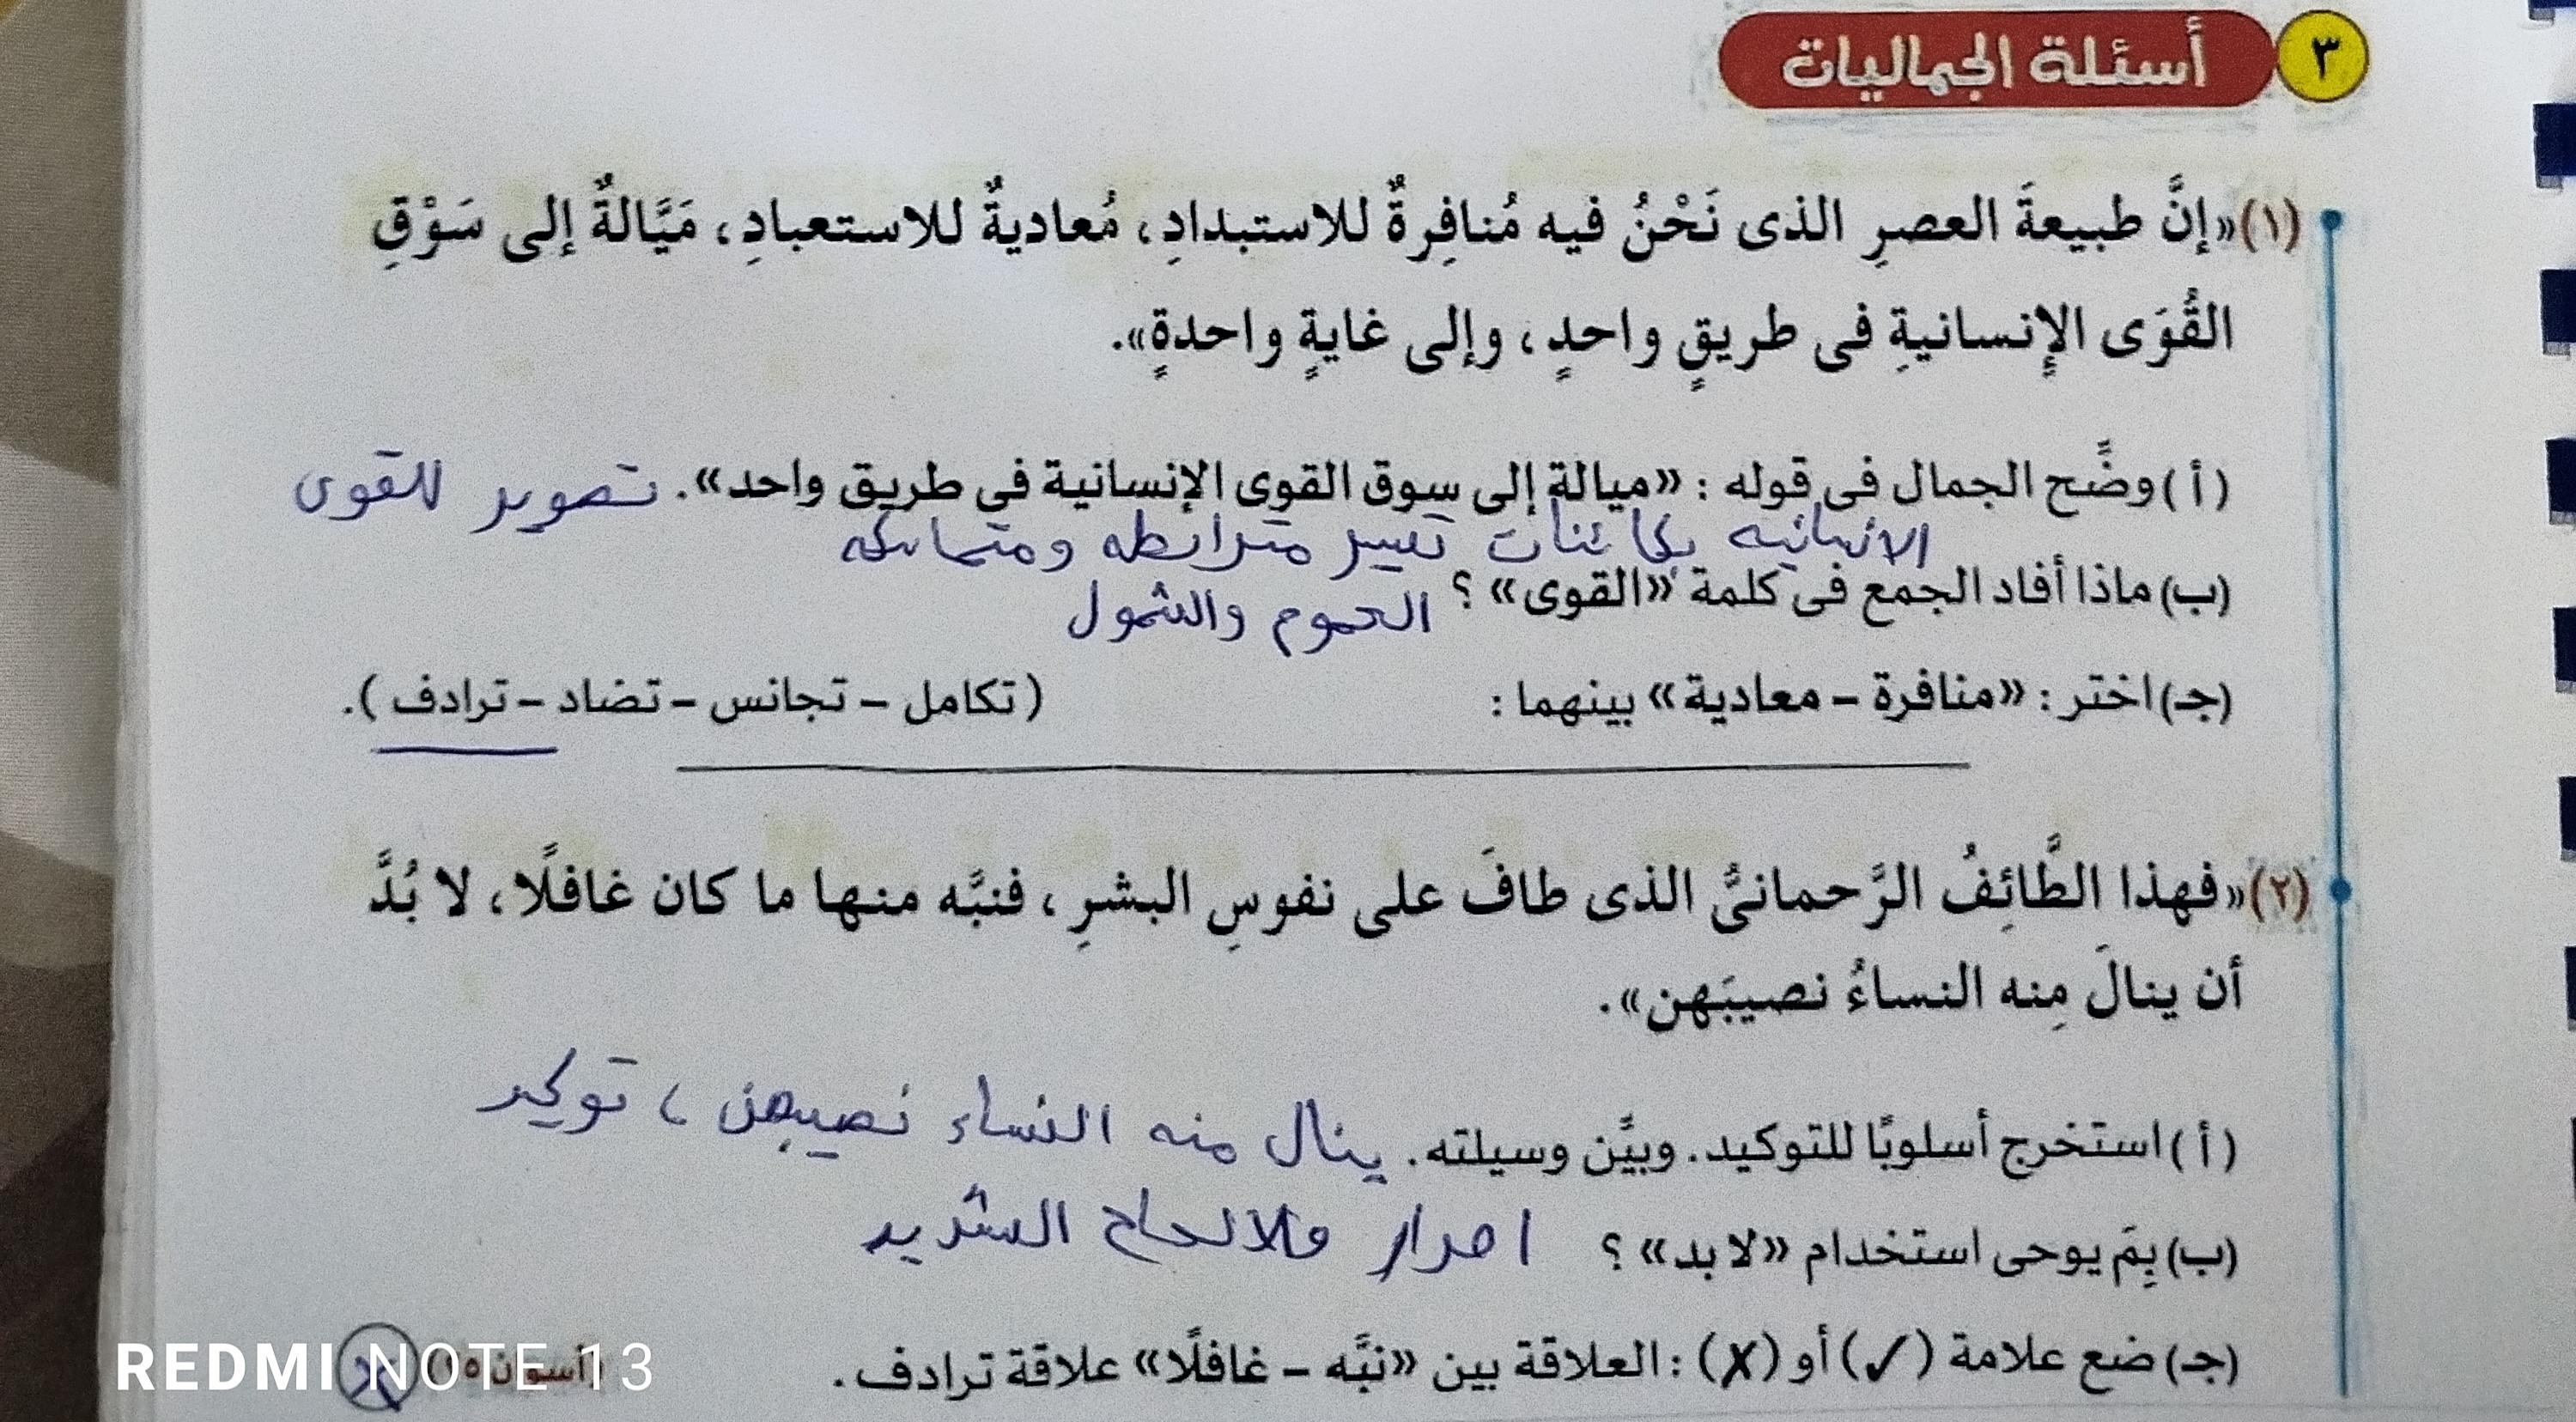 ٣ أسئلة الجماليات
(١) «إنَّ طبيعةَ العصرِ الذى نَحْنُ فيه مُنافِرةٌ للاستبدادِ، مُعاديةٌ للاستعبادِ، مَيَّالةٌ إلى سَوْقِ
القُوَى الإنسانيةِ فى طريقٍ واحدٍ، وإلى غايةٍ واحدةٍ».
(أ) وضَّح الجمال فى قوله : «ميالة إلى سوق القوى الإنسانية فى طريق واحد». تصوير للقوى
الانسانيه بكائنات تسير مترابطه ومتماسكه
(ب) ماذا أفاد الجمع فى كلمة «القوى» ؟ العموم والشمول
(جـ) اختر : «منافرة – معادية» بينهما : (تكامل – تجانس – تضاد – ترادف).
(٢) «فهذا الطَّائِفُ الرَّحمانىُّ الذى طافَ على نفوسِ البشرِ، فنبَّه منها ما كان غافلًا، لا بُدَّ
أن ينالَ مِنه النساءُ نصيبَهن».
(أ) استخرج أسلوبًا للتوكيد. وبيَّن وسيلته. ينال منه النساء نصيبهن ، توكيد
(ب) بِمَ يوحى استخدام «لا بد» ؟ اصرار والالحاح الشديد
(جـ) ضع علامة (✓) أو (✗) : العلاقة بين «نبَّه – غافلًا» علاقة ترادف. (أسوان ١٥)
REDMI NOTE 13